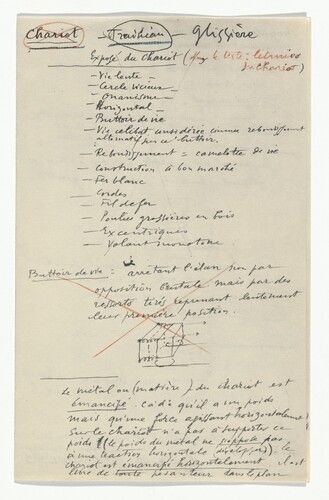 Chariot — Traîneau — Glissière
Exposé du Chariot (
— Vie lente —
— Cercle vicieux —
— Onanisme —
— Horizontal —
— Buttoir de vie
— Vie célibat considérée comme rebondissement
alternatif sur ce buttoir.
— Rebondissement = camelote de vie
— Construction à bon marché
— Fer blanc
— Cordes
— Fil de fer
— Poulies grossières en bois
— Excentriques
— Volant monotone
Buttoir de vie : arrêtant l'élan non par
opposition brutale mais par des
ressorts tirés reprenant lentement
leur première position.
Le métal ou (matière) du chariot est
émancipé. càd qu'il a un poids
mais qu'une force agissant horizontalement
sur le chariot n'a pas à supporter ce
poids (le poids du métal ne s'oppose pas
à une traction horizontale
chariot est émancipé horizontalement il est
libre de toute pesanteur dans le plan